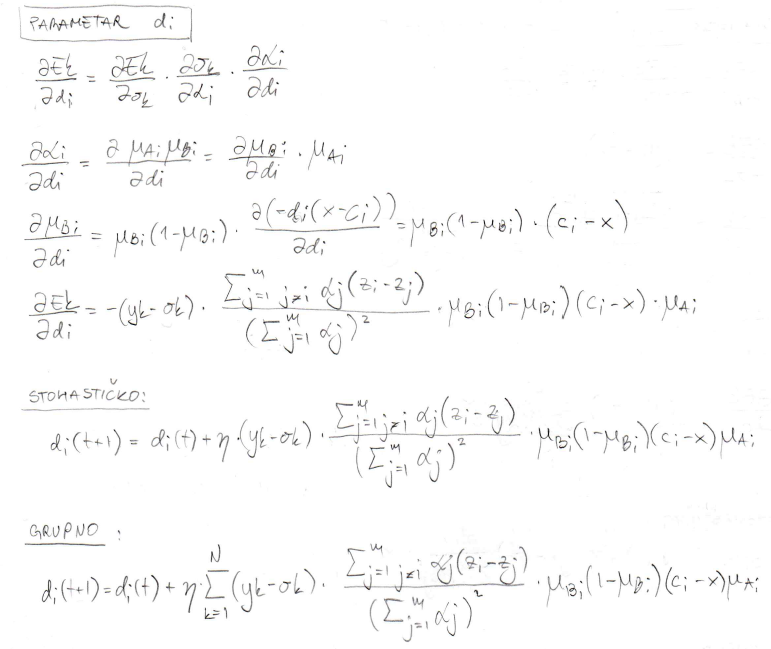 PARAMETAR di
∂Ek/∂di = ∂Ek/∂ok · ∂ok/∂αi · ∂αi/∂di
∂αi/∂di = ∂μAi μBi/∂di = ∂μBi/∂di · μAi
∂μBi/∂di = μBi(1-μBi) · ∂(-di(x-ci))/∂di = μBi(1-μBi) · (ci-x)
∂Ek/∂di = -(yk-ok) · Σ^m_{j=1 j≠i} αj(zi-zj)/(Σ^m_{j=1} αj)² · μBi(1-μBi)(ci-x) · μAi
STOHASTIČKO:
di(t+1) = di(t) + η·(yk-ok) · Σ^m_{j=1 j≠i} αj(zi-zj)/(Σ^m_{j=1} αj)² · μBi(1-μBi)(ci-x)μAi
GRUPNO :
di(t+1) = di(t) + η·Σ^N_{k=1} (yk-ok) · Σ^m_{j=1 j≠i} αj(zi-zj)/(Σ^m_{j=1} αj)² · μBi(1-μBi)(ci-x)μAi